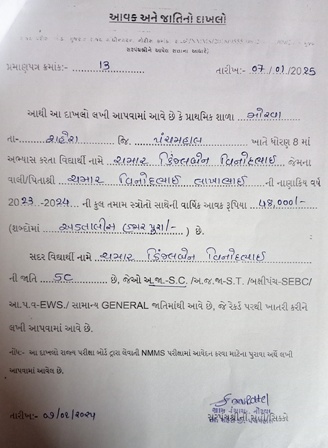 આવક અને જાતિનો દાખલો
પ્રમાણપત્ર ક્રમાંક:- 13 તારીખ:- 07/01/2025
આથી આ દાખલો લખી આપવામાં આવે છે કે પ્રાથમિક શાળા મોરવા
તા- શહેરા જિ. પંચમહાલ ખાતે ધોરણ 8 માં
અભ્યાસ કરતા વિદ્યાર્થી નામે ચમાર ડિંજલબેન વિનોદભાઈ જેમના
વાલી/પિતાશ્રી ચમાર વિનોદભાઈ લાખાભાઈ ની નાણાકિય વર્ષ
2023 -2024 ની કુલ તમામ સ્ત્રોતો સાથેની વાર્ષિક આવક રૂપિયા 48,000/-
(શબ્દોમાં અડતાલીસ હજાર પુરા/-) છે.
સદર વિદ્યાર્થી નામે ચમાર ડિંજલબેન વિનોદભાઈ
ની જાતિ SC છે, જેઓ અ.જા.-S.C. /અ.જ.જા-S.T. /બક્ષીપંચ-SEBC/
આ.પ.વ-EWS./ સામાન્ય GENERAL જાતિમાંથી આવે છે, જે રેકર્ડ પરથી ખાતરી કરીને
લખી આપવામાં આવે છે.
નોંધ:- આ દાખલો રાજ્ય પરીક્ષા બોર્ડ દ્વારા લેવાતી NMMS પરીક્ષામાં આવેદન કરવા માટેના પુરાવા અર્થે લખી
આપવામાં આવેલ છે.
તારીખ:- 07/01/2025